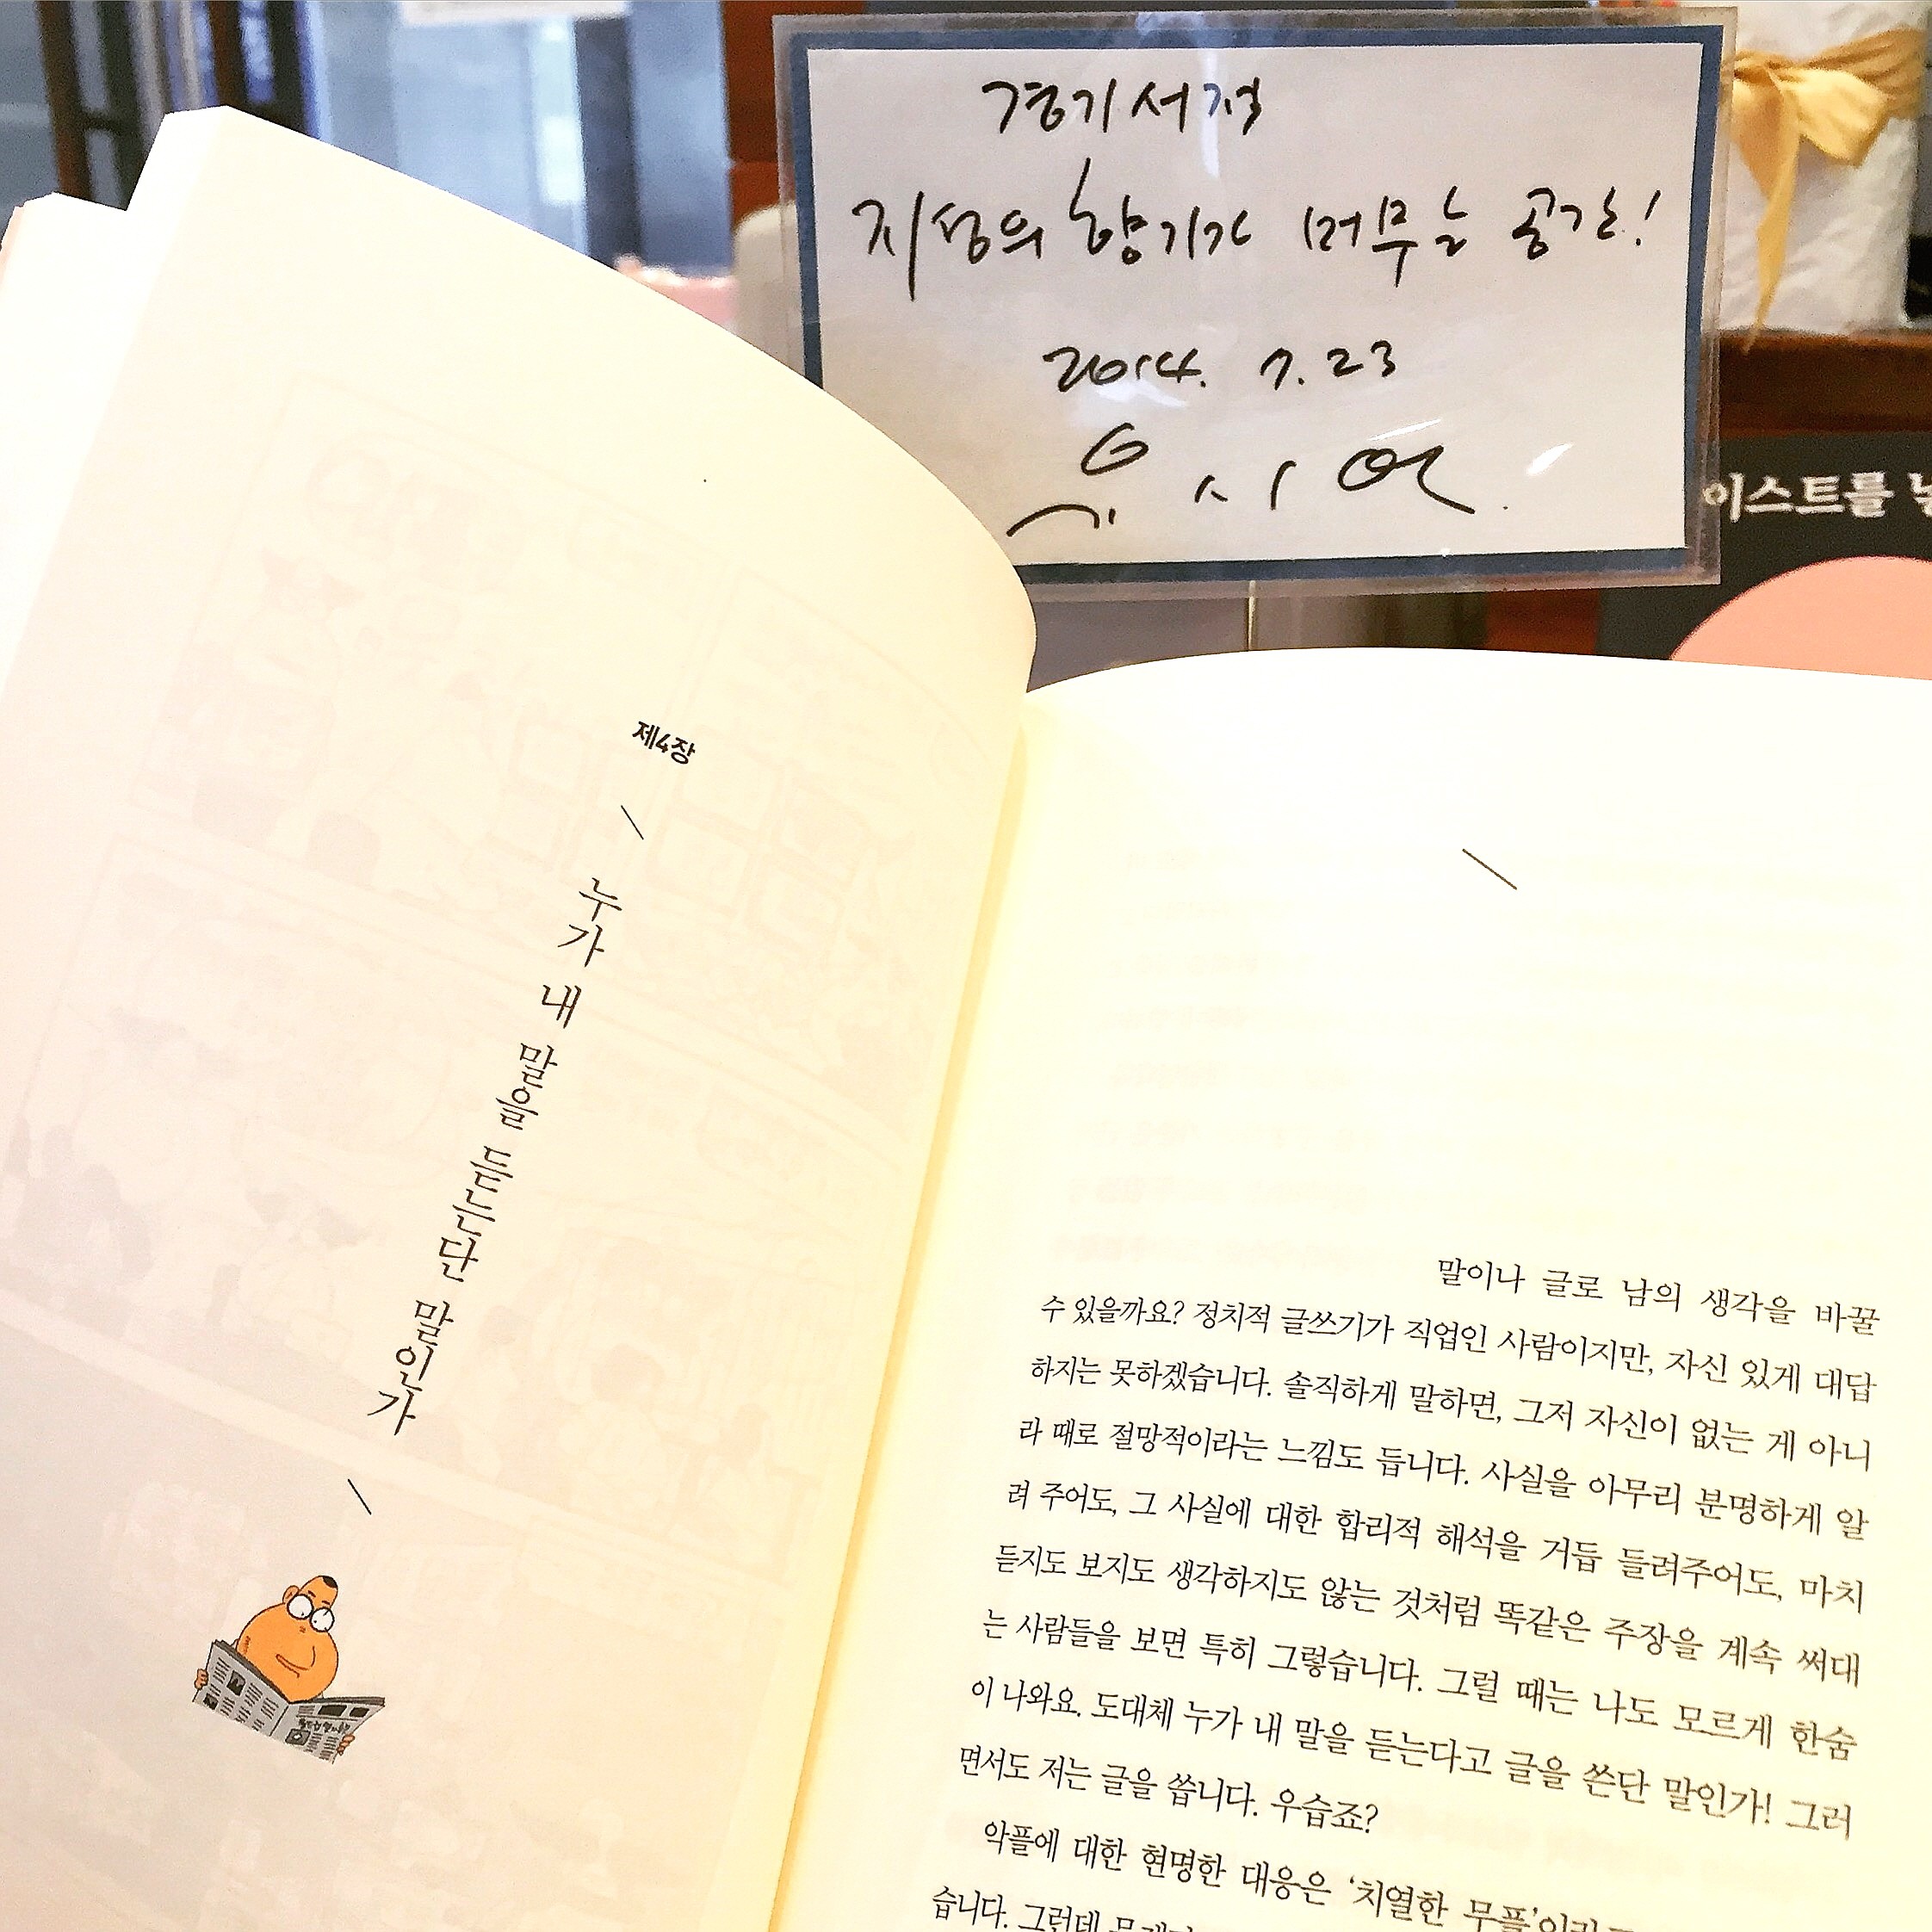 경기서적
지성의 향기가 머무는 공간!
2014. 7. 23
유시민
이스트를
제4장
누가 내 말을 듣는단 말인가
말이나 글로 남의 생각을 바꿀
수 있을까요? 정치적 글쓰기가 직업인 사람이지만, 자신 있게 대답
하지는 못하겠습니다. 솔직하게 말하면, 그저 자신이 없는 게 아니
라 때로 절망적이라는 느낌도 듭니다. 사실을 아무리 분명하게 알
려 주어도, 그 사실에 대한 합리적 해석을 거듭 들려주어도, 마치
듣지도 보지도 생각하지도 않는 것처럼 똑같은 주장을 계속 써대
는 사람들을 보면 특히 그렇습니다. 그럴 때는 나도 모르게 한숨
이 나와요. 도대체 누가 내 말을 듣는다고 글을 쓴단 말인가! 그러
면서도 저는 글을 씁니다. 우습죠?
악플에 대한 현명한 대응은 ‘치열한 무플’이라
습니다. 그런데